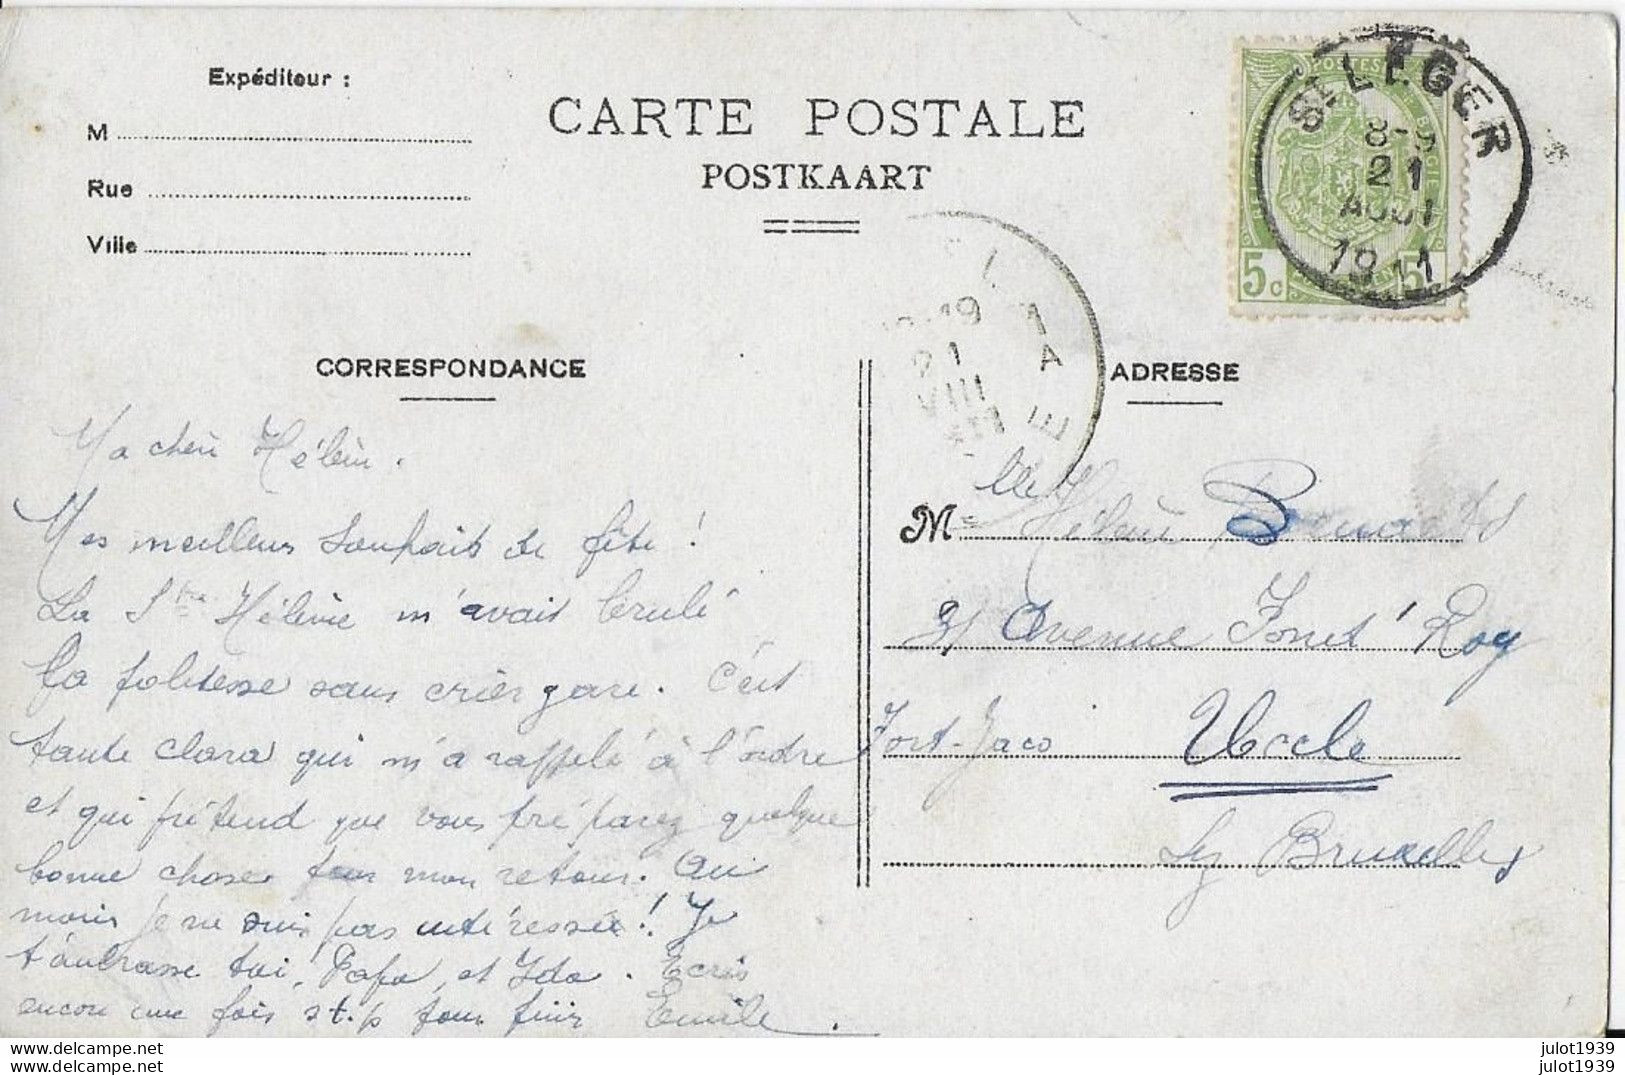 Expéditeur :
M
Rue
Ville
CARTE POSTALE
POSTKAART
POSTES
5c
5c
St LÉGER
8-9
21
AOUT
1911
-19
21
VIII
1
A
E
CORRESPONDANCE
ADRESSE
Ma chère Hélène.
Mes meilleurs souhaits de fête !
La Ste Hélène m'avait brulé
la politesse sans crier gare. C'est
tante Clara qui m'a rappelé à l'ordre
et qui prétend que vous préparez quelque
bonne chose pour mon retour. Oui
mais je ne suis pas intéressée ! Je
t'embrasse toi, Papa, et Ida. Ecris
encore une fois s.t.p pour finir Emile.
Mlle Hélène
31 Avenue Fond' Roy
Fort-Jaco Uccle
Lez Bruxelles
julot1939.delcampe.net
julot1939.delcampe.net
julot1939
julot1939